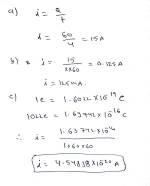 a) i = q/t
i = 60/4 = 15A
b) i = 15/(2×60) = 0.125A
i = 125mA.
c) 1e = 1.6022×10⁻¹⁹ C
1022e = 1.63742×10⁻¹⁶ C
∴ i = 1.63742×10⁻¹⁶/(1×60×60)
i = 4.54838×10⁻²⁰ A